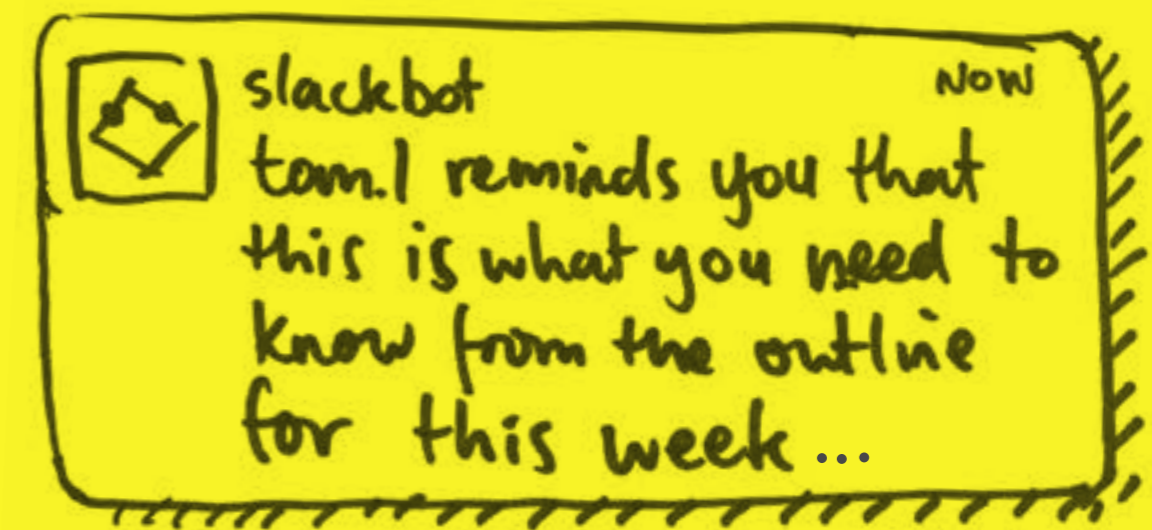 slackbot NOW
tam.l reminds you that
this is what you need to
know from the outline
for this week ...